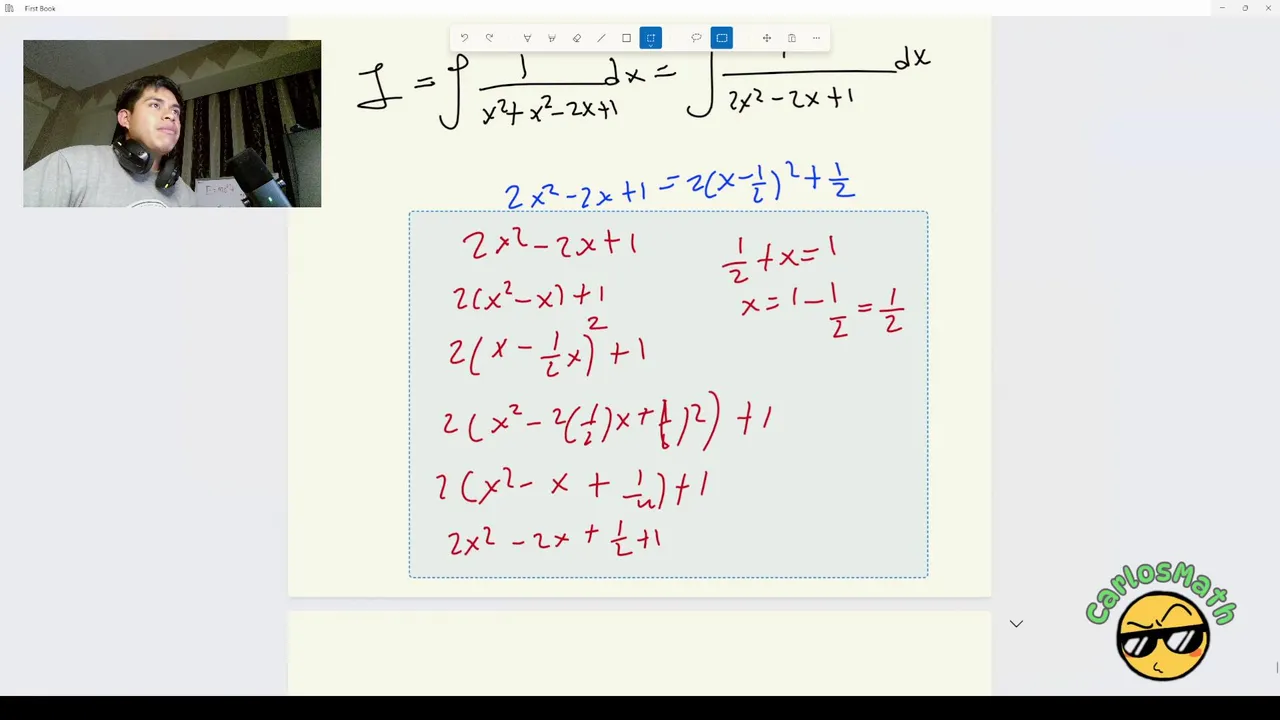 First Book
I = ∫ 1/(x²+x²-2x+1) dx = ∫ /(2x²-2x+1) dx
2x²-2x+1 = 2(x-1/2)²+1/2
2x²-2x+1
2(x²-x)+1
2(x-1/2x)²+1
2(x²-2(1/2)x+()²)+1
2(x²-x+1/4)+1
2x²-2x+1/2+1
1/2+x=1
x=1-1/2=1/2
CarlosMath